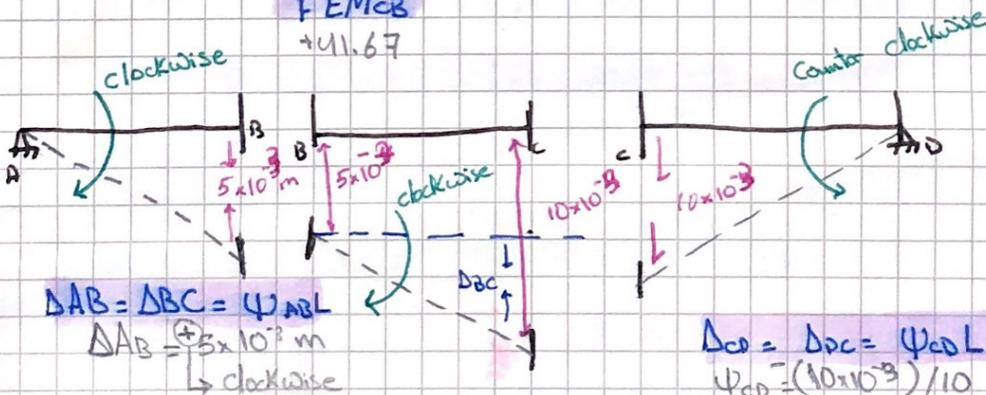 FEMCB
+41.67
clockwise
Counter clockwise
A
B
B
C
C
D
5x10⁻³ m
5x10⁻³
clockwise
10x10⁻³
10x10⁻³
ΔBC
ΔAB = ΔBC = ΨABL
ΔAB = +5x10⁻³ m
↳ clockwise
ΔCD = ΔDC = ΨCDL
ΨCD = (10x10⁻³)/10